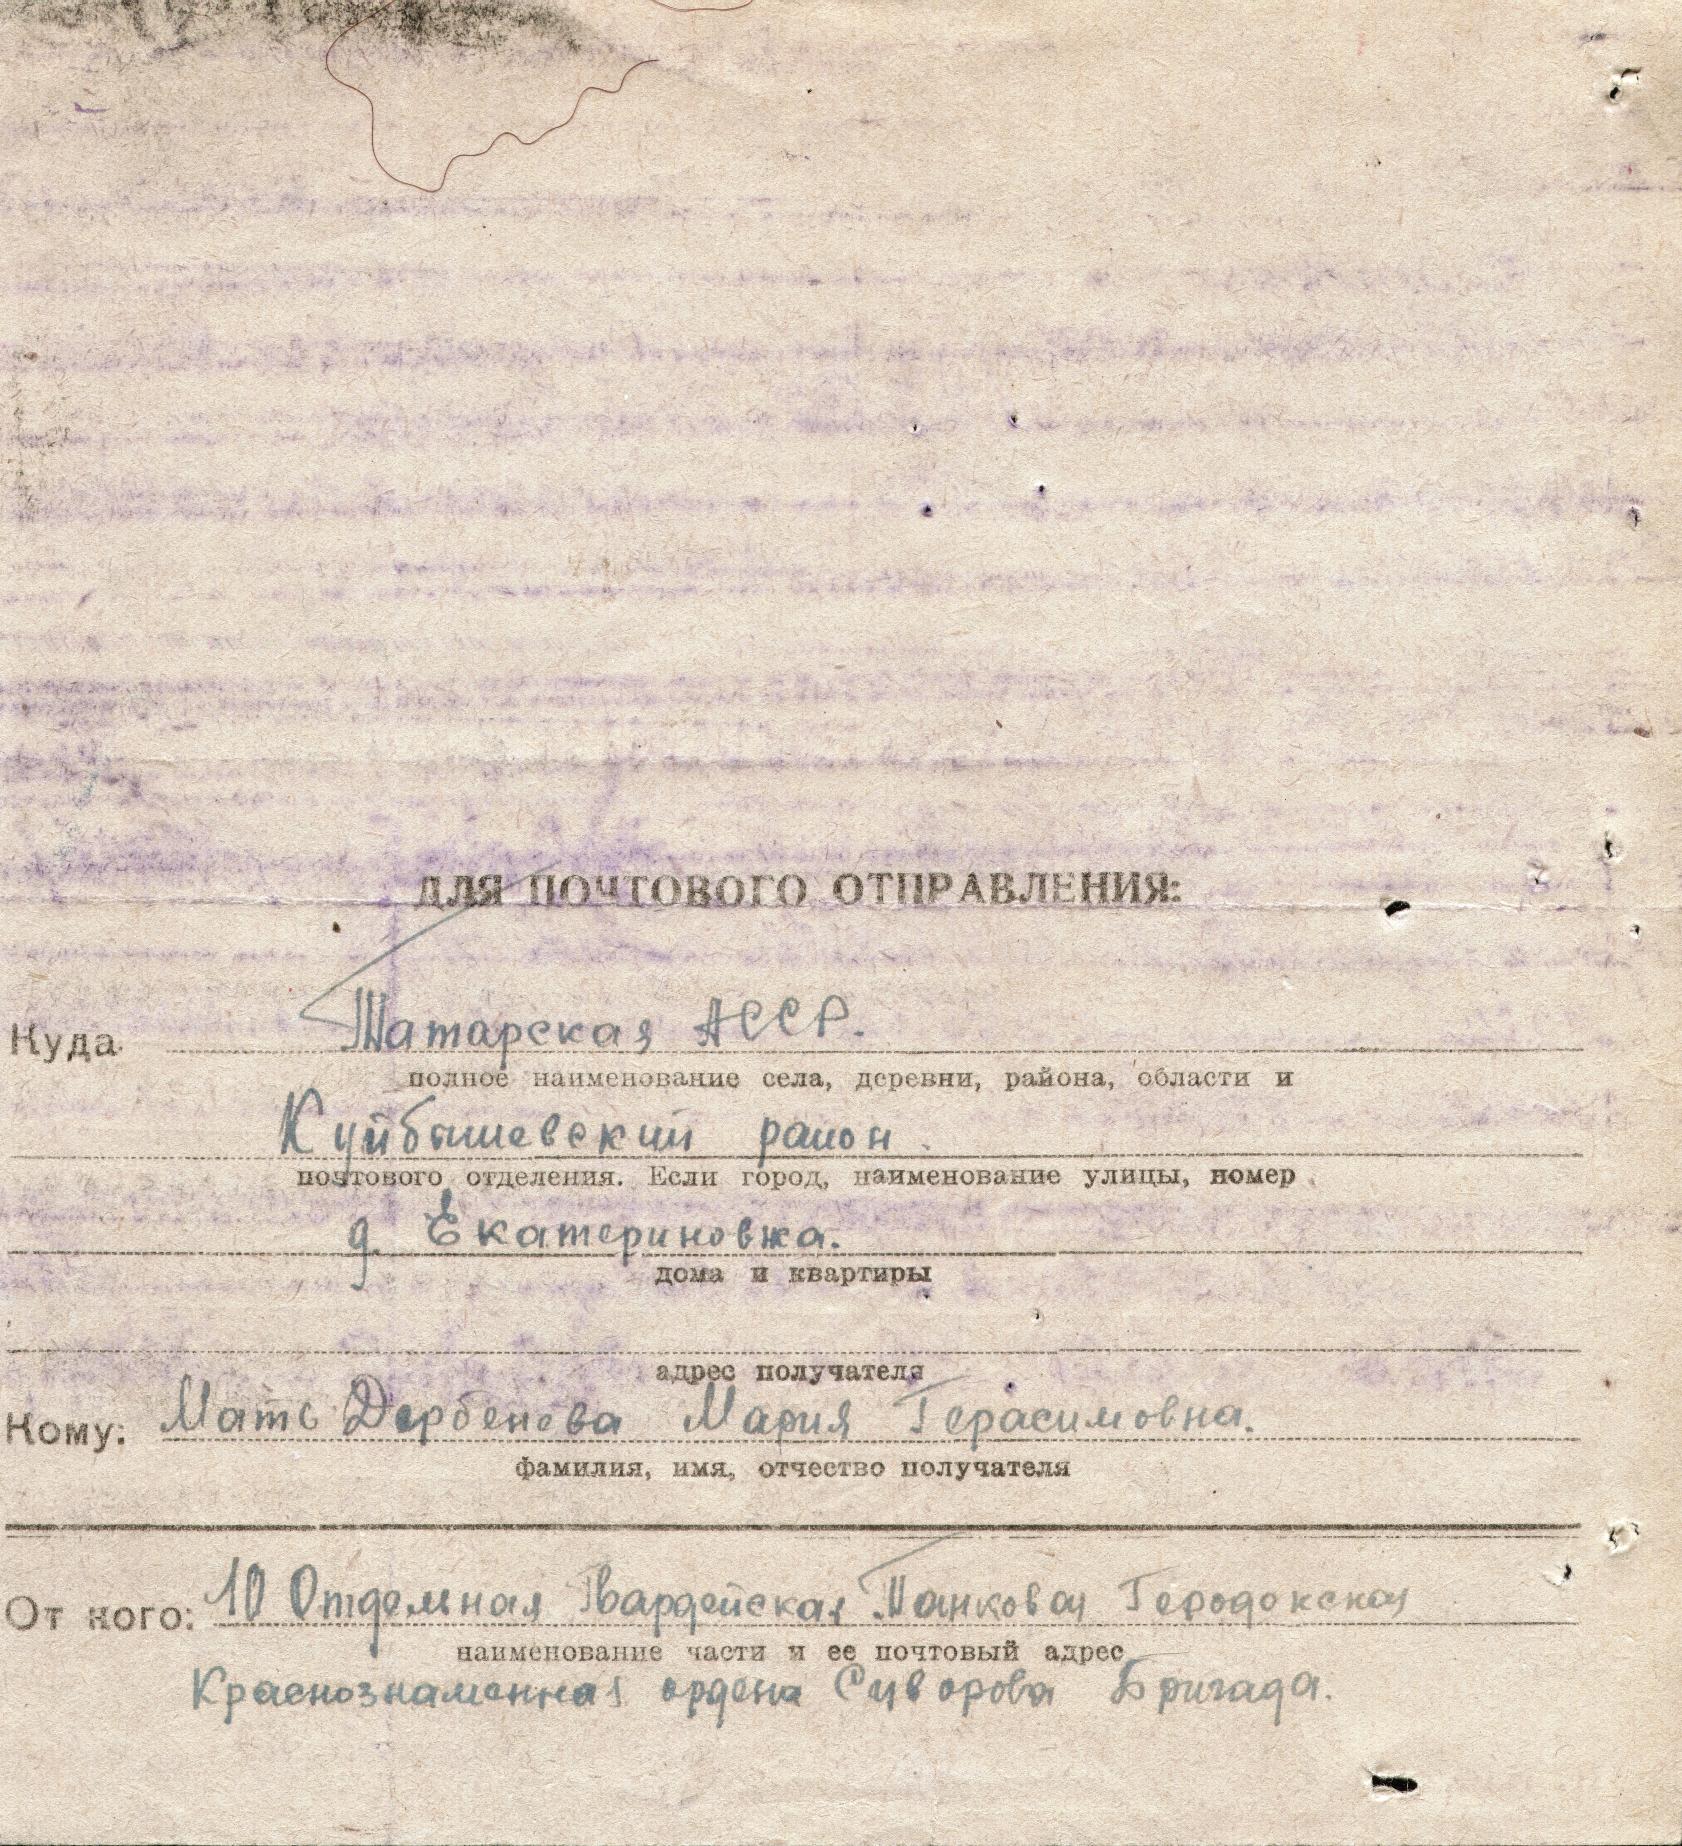 ДЛЯ ПОЧТОВОГО ОТПРАВЛЕНИЯ:
Куда Татарская АССР.
полное наименование села, деревни, района, области и
Куйбышевский район.
почтового отделения. Если город, наименование улицы, номер
д. Екатериновка.
дома и квартиры
адрес получателя
Кому: Мать Дербенева Мария Герасимовна.
фамилия, имя, отчество получателя
От кого: 10 Отдельная Гвардейская Танковая Городокская
наименование части и ее почтовый адрес
Краснознаменная ордена Суворова Бригада.